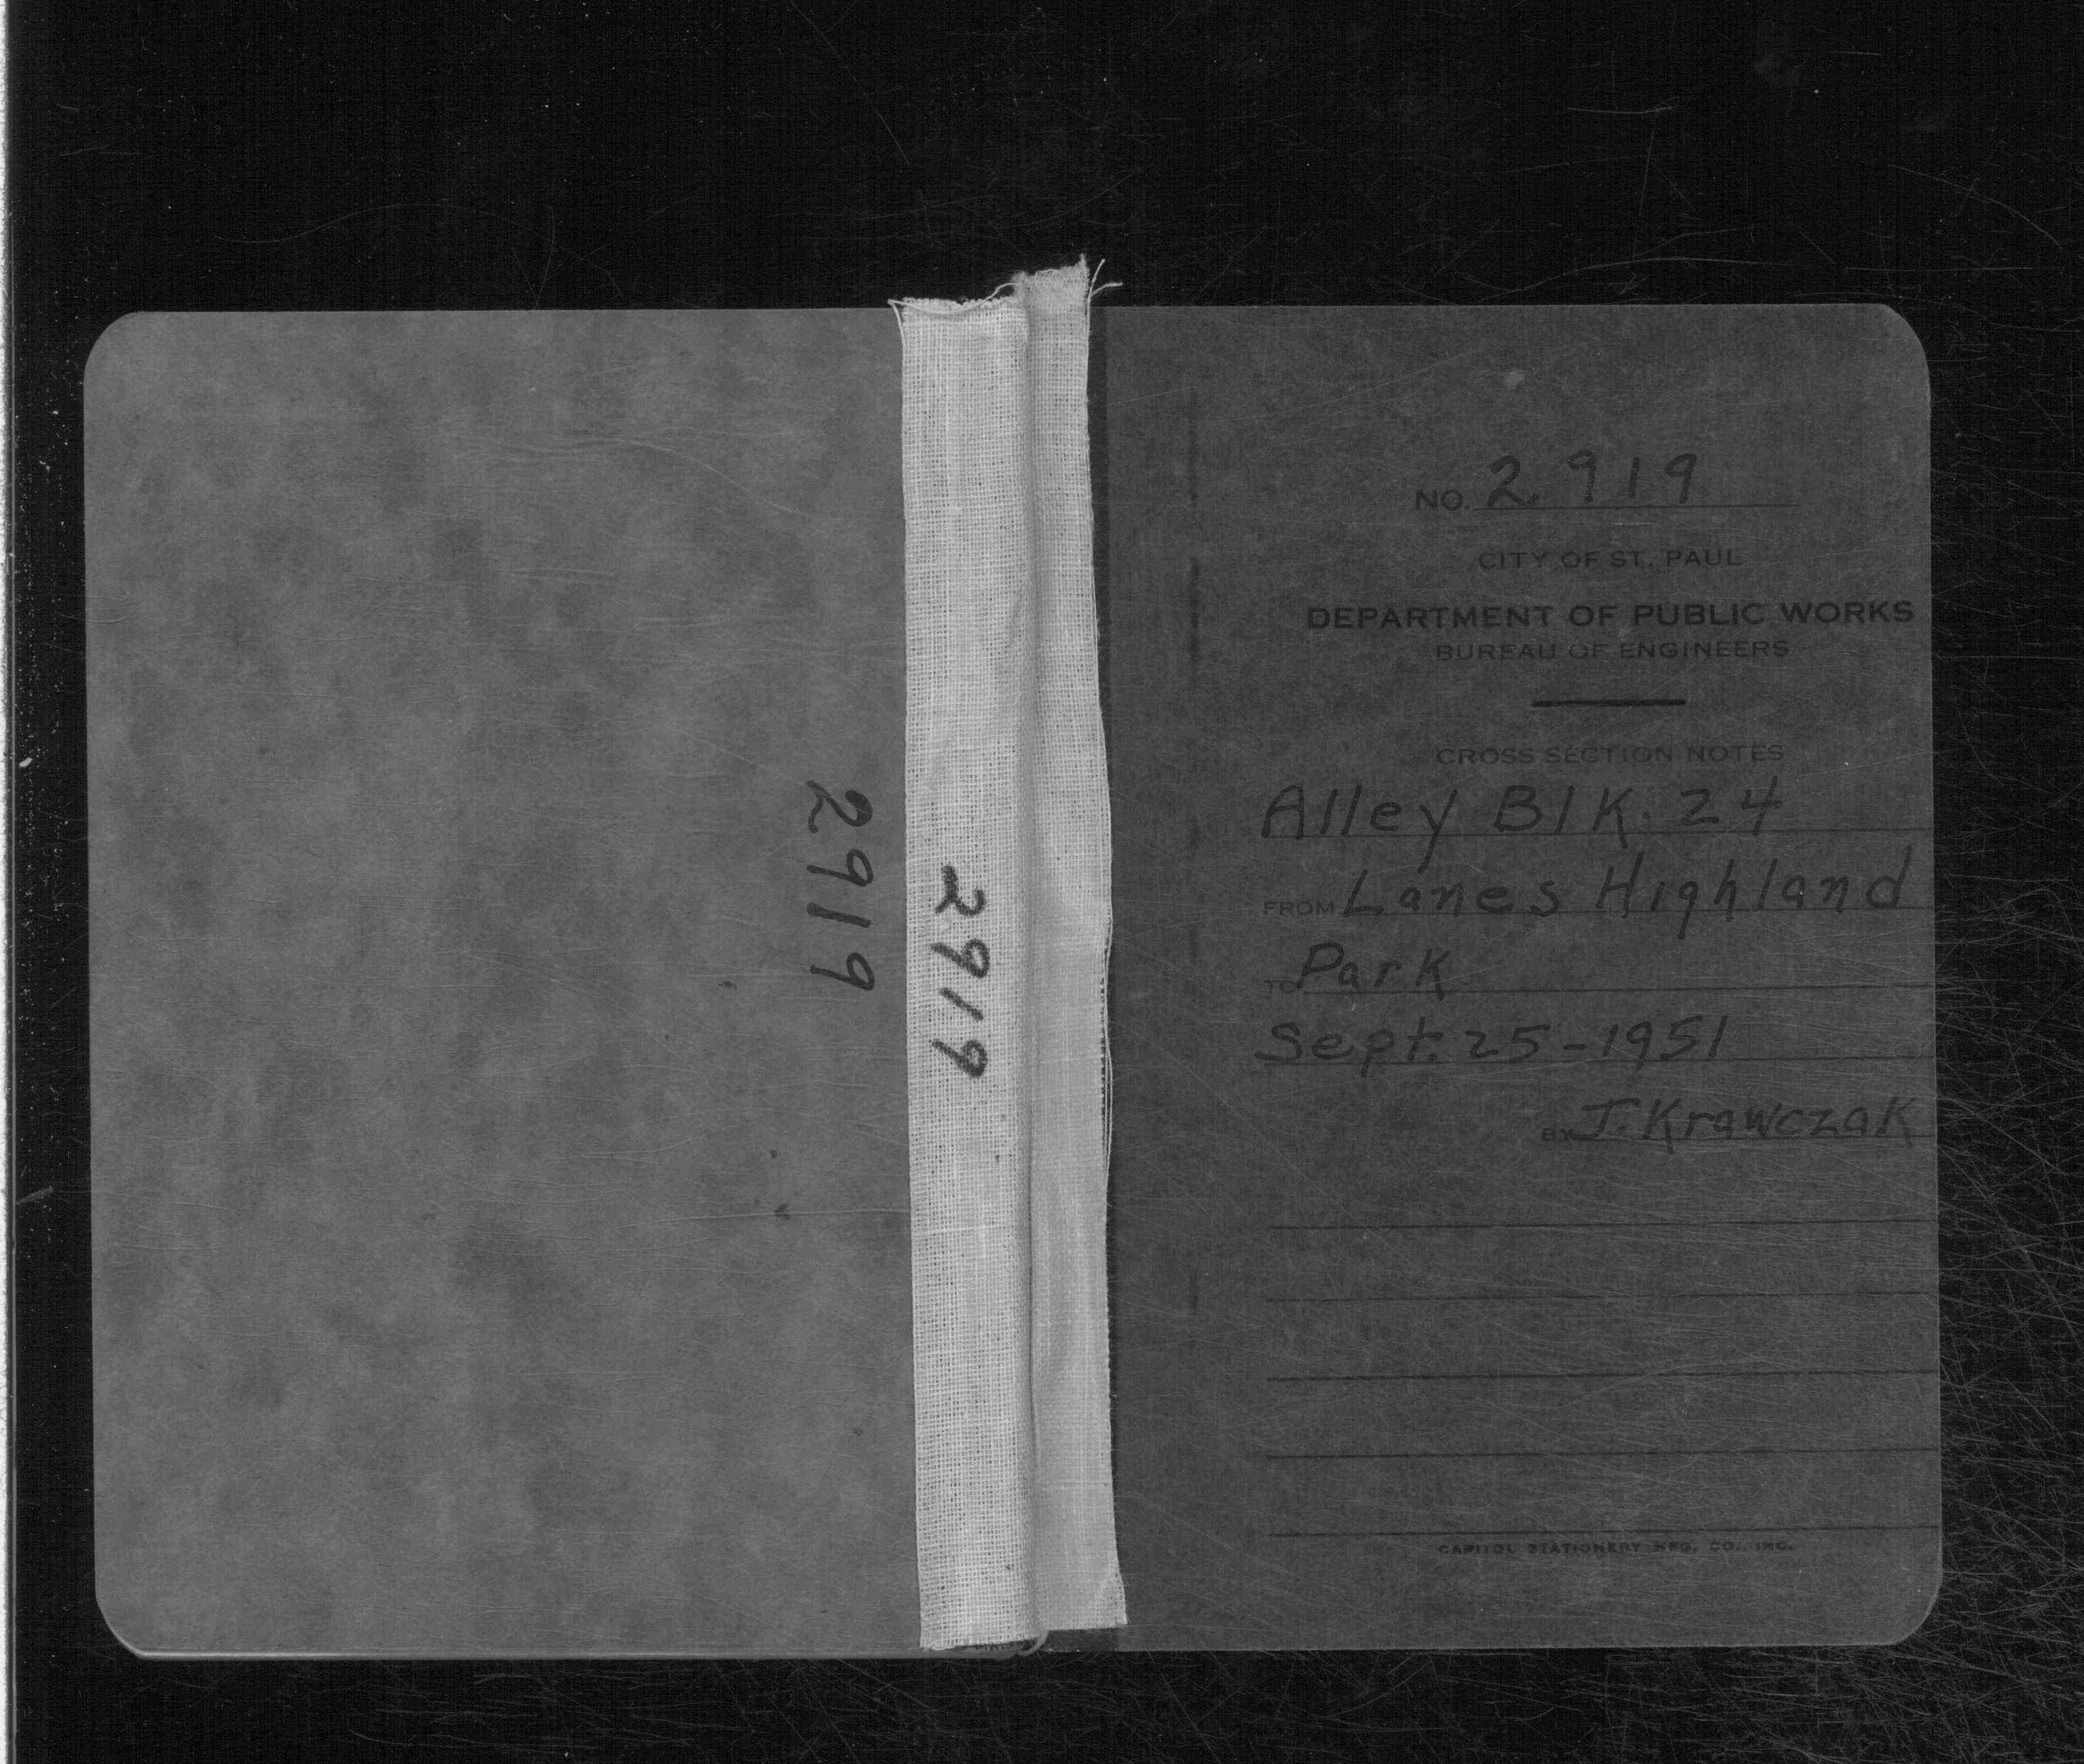 2919
2919
NO. 2919
CITY OF ST. PAUL
DEPARTMENT OF PUBLIC WORKS
BUREAU OF ENGINEERS
CROSS SECTION NOTES
Alley Blk. 24
FROM Lanes Highland
TO Park
Sept. 25-1951
BY J. Krawczak
CAPITOL STATIONERY MFG. CO., INC.